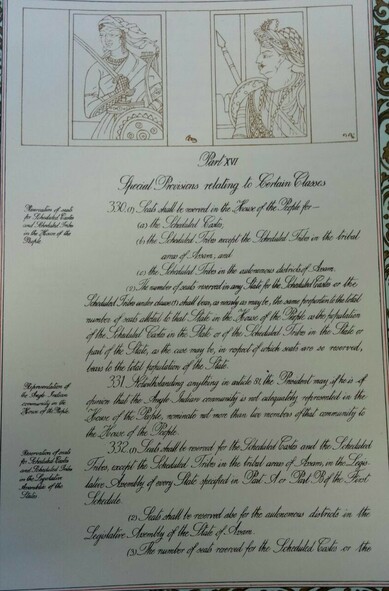 Part XVI
Special Provisions relating to Certain Classes
Reservation of seats
for Scheduled Castes
and Scheduled Tribes
in the House of the
People.
330. (1) Seats shall be reserved in the House of the People for—
(a) the Scheduled Castes;
(b) the Scheduled Tribes except the Scheduled Tribes in the tribal
areas of Assam; and
(c) the Scheduled Tribes in the autonomous districts of Assam.
(2) The number of seats reserved in any State for the Scheduled Castes or the
Scheduled Tribes under clause (1) shall bear, as nearly as may be, the same proportion to the total
number of seats allotted to that State in the House of the People as the population
of the Scheduled Castes in the State or of the Scheduled Tribes in the State or
part of the State, as the case may be, in respect of which seats are so reserved,
bears to the total population of the State.
Representation of
the Anglo-Indian
community in the
House of the People.
331. Notwithstanding anything in article 81, the President may, if he is of
opinion that the Anglo-Indian community is not adequately represented in the
House of the People, nominate not more than two members of that community to
the House of the People.
Reservation of seats
for Scheduled Castes
and Scheduled Tribes
in the Legislative
Assemblies of the
States.
332. (1) Seats shall be reserved for the Scheduled Castes and the Scheduled
Tribes, except the Scheduled Tribes in the tribal areas of Assam, in the Legis-
lative Assembly of every State specified in Part A or Part B of the First
Schedule.
(2) Seats shall be reserved also for the autonomous districts in the
Legislative Assembly of the State of Assam.
(3) The number of seats reserved for the Scheduled Castes or the